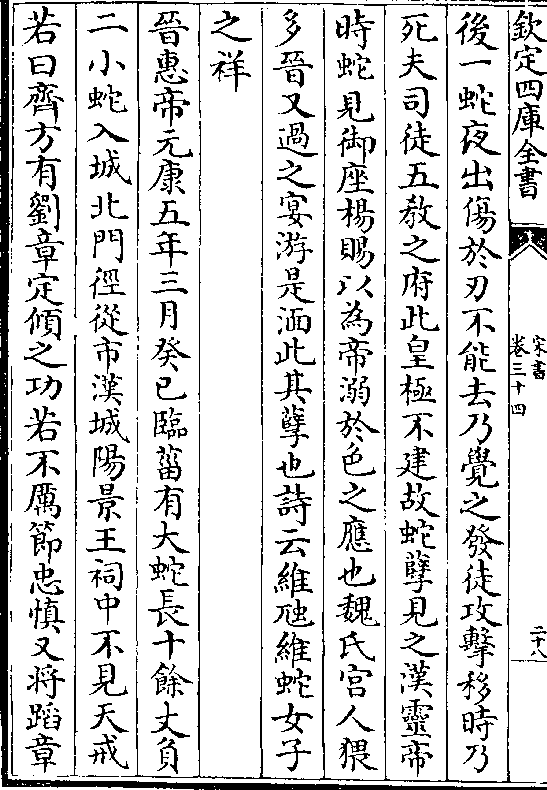 欽定四庫全書
宋書
卷三十四
二十八
後一蛇夜出傷於刃不能去乃覺之發徒攻擊移時乃
死夫司徒五教之府此皇極不建故蛇孽見之漢靈帝
時蛇見御座楊賜以為帝溺於色之應也魏氏宫人猥
多晉又過之宴游是湎此其孽也詩云維虺維蛇女子
之祥
晉惠帝元康五年三月癸巳臨菑有大蛇長十餘丈負
二小蛇入城北門徑從市漢城陽景王祠中不見天戒
若曰齊方有劉章定傾之功若不厲節忠慎又將蹈章